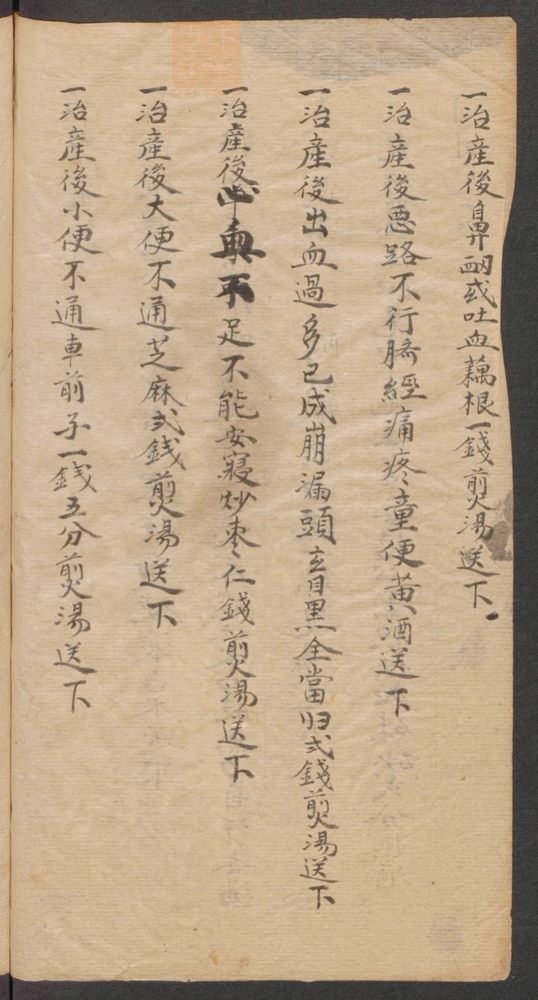 一治産後鼻衄或吐血藕根一錢煎湯送下
一治産後惡路不行臍經痛疼童便黃酒送下
一治産後出血過多已成崩漏頭玄目黑全當归弍錢煎湯送下
一治産後心血不足不能安寢炒枣仁錢煎湯送下
一治産後大便不通芝麻弍錢煎湯送下
一治産後小便不通車前子一錢五分煎湯送下